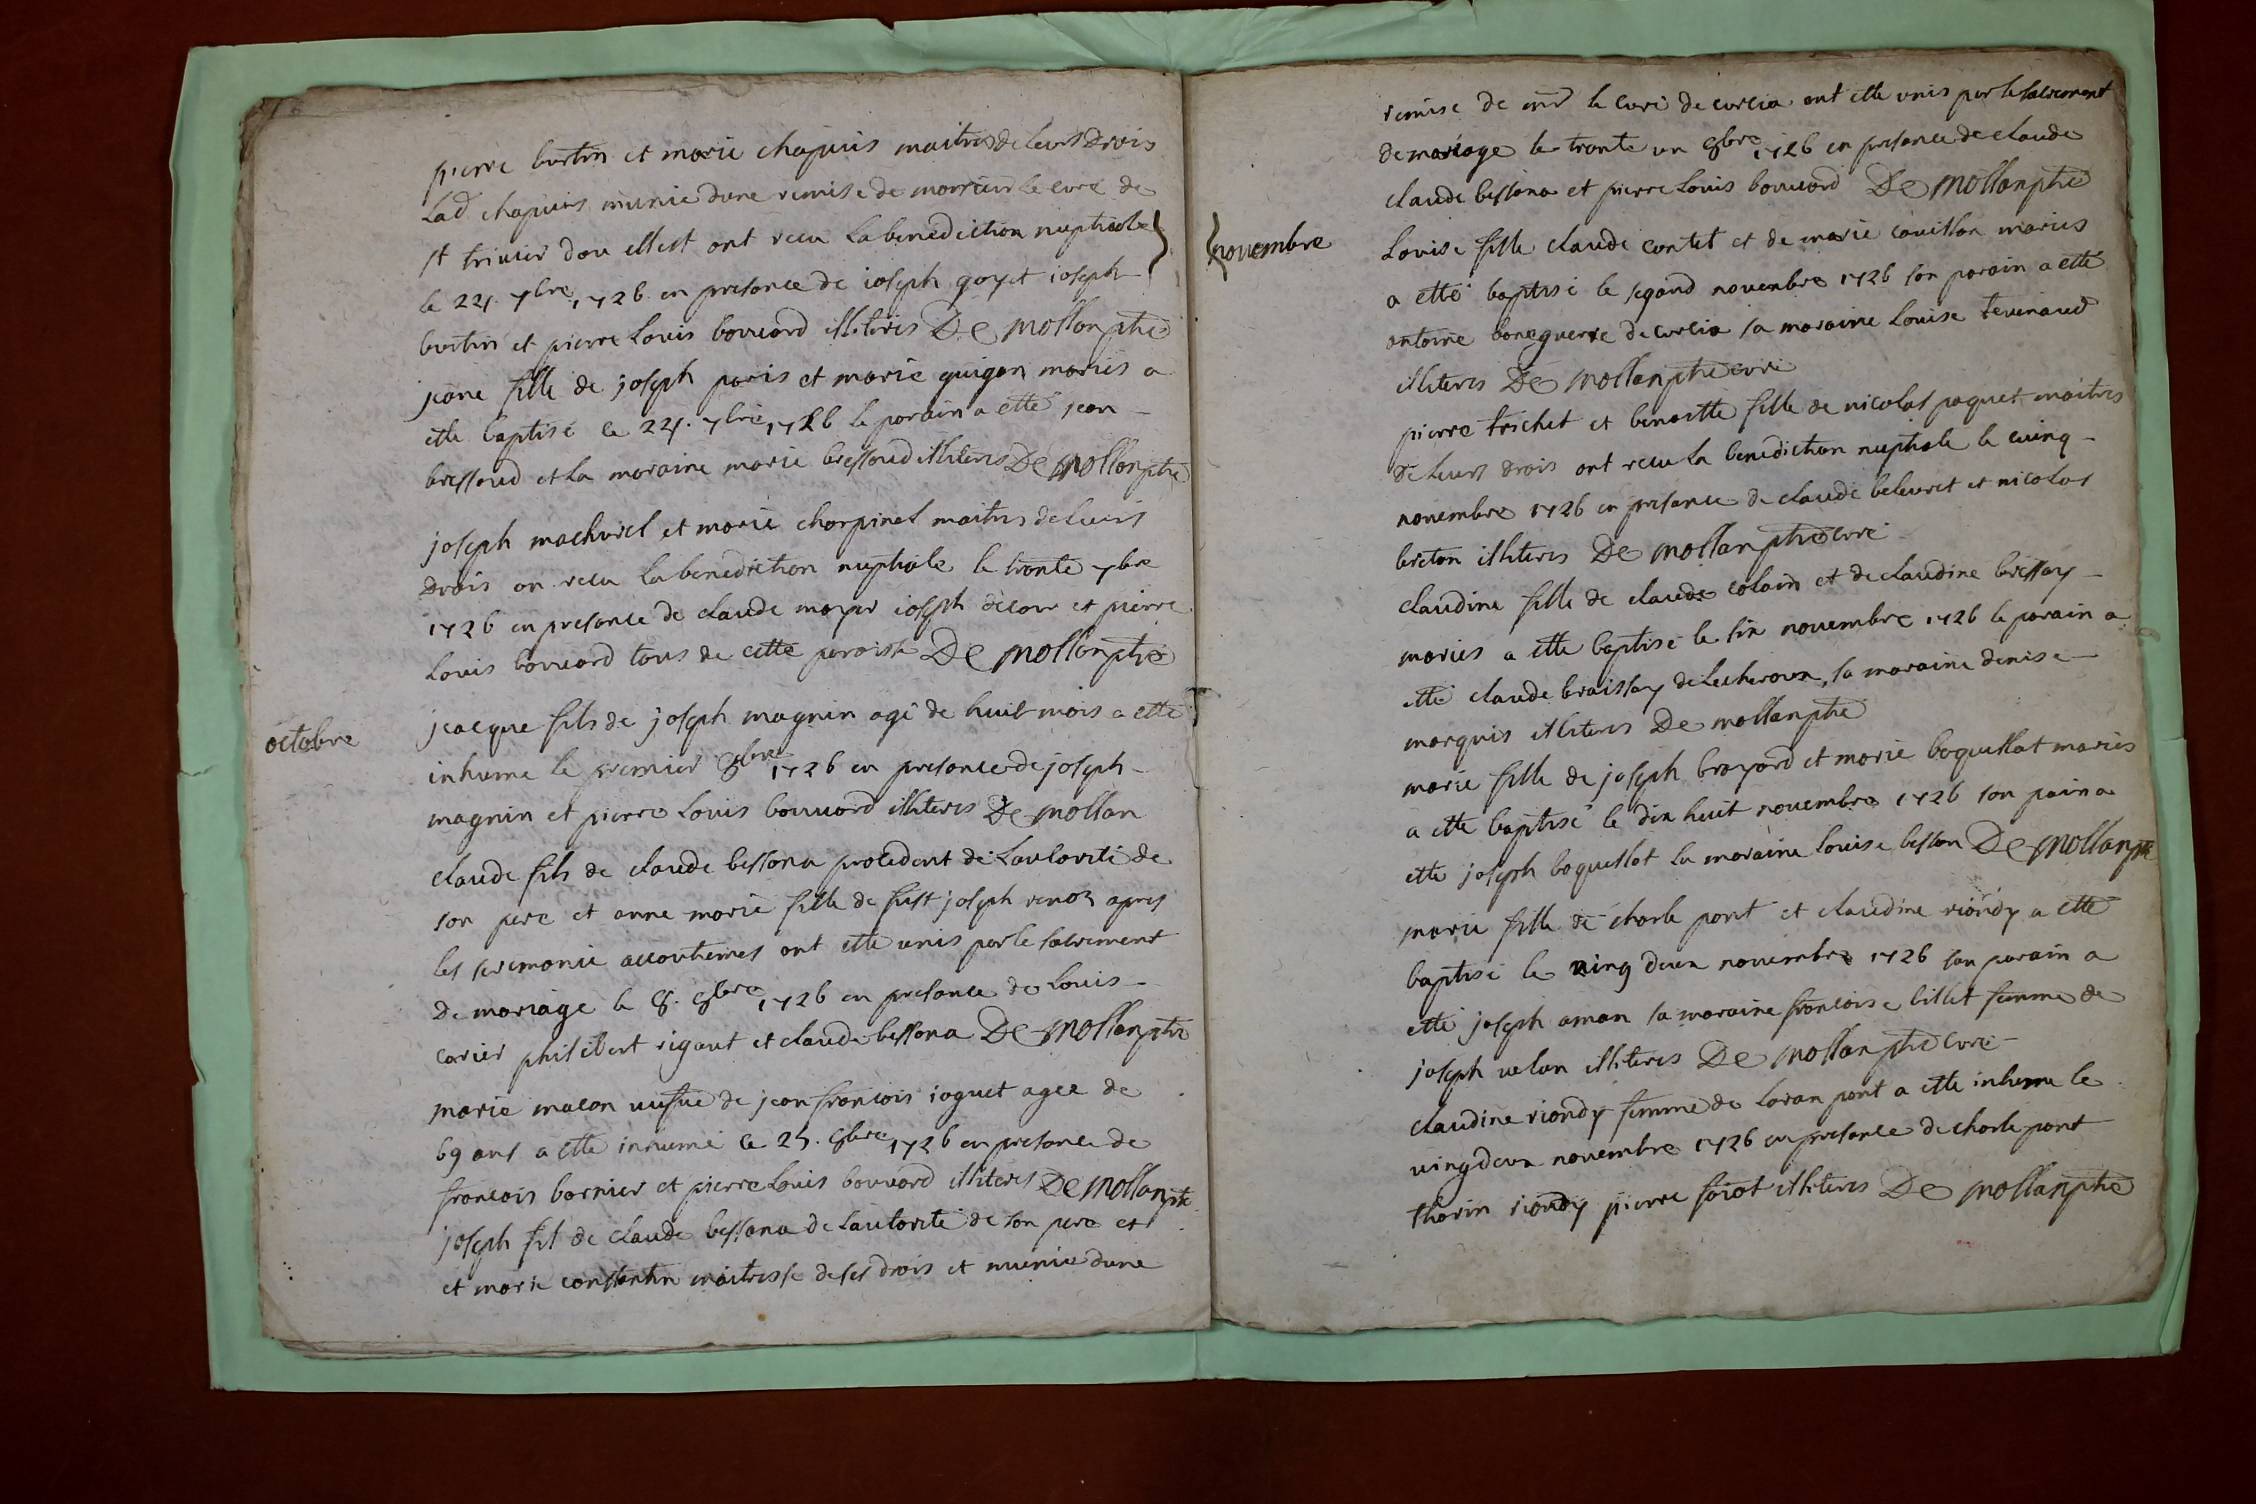 pierre burtin et marie chapuis maitres de leurs drois
lad chapuis munie dune remise de monsieur le curé de
st trivier dou ellest ont receu la benediction nuptiale
le 24. 7bre 1726 en presance de ioseph goyet ioseph
burtin et pierre louis bouuard illiteres De Mollanphé
jeane fille de joseph paris et marie guigon mariés a
ette baptisé le 24. 7bre 1726 le parain a etté jean
bressoud et la maraine marie bressoud illiteres De Mollanphé
joseph machurel et marie charpinel maitres de leurs
drois on receu la benediction nuptiale le trante 7bre
1726 en presance de claude mayer ioseph decour et pierre
louis bouuard tous de cette paroisse De Mollanphé
octobre
jeacque fils de joseph magnin agé de huit mois a etté
inhume le premier 8bre 1726 en presance de joseph
magnin et pierre louis bouuard illiteres De Mollan
claude fils de claude bessona procedant de lautorité de
son pere et anne marie fille de fust joseph renoz apres
les seremonie accoutemes ont etté unis par le sacrement
de mariage le 8. 8bre 1726 en presance de louis
carier philibert rigaut et claude bessona De Mollanphé
marie macon uefue de jean francois ioguet agee de
69 ans a etté inhumé le 25. 8bre 1726 en presance de
francois bornier et pierre louis bouuard illiteres De Mollanphé
joseph fil de claude bessona de lautorité de son pere et
et marie constantin maitresse de ses drois et munie dune
remise de mr le curé de curcia ont etté unis par le sacrement
de mariage le trante un 8bre 1726 en presance de claude
claude bessona et pierre louis bouuard De Mollanphé
novembre
Louise fille claude contet et de marie cauillon mariés
a etté baptisé le segond nouembre 1726 son parain a etté
antoine boneguerre de curcia sa maraine louise teuenaud
illiteres De Mollanphé curé
pierre trichet et benoitte fille de nicolas paquet maitres
de leurs drois ont receu la benediction nuptiale le cuinq
nouembre 1726 en presance de claude beleuret et nicolas
breton illiteres De Mollanphé curé
claudine fille de claude colain et de claudine bressoy
mariés a etté baptisé le six nouembre 1726 le parain a
etté claude braissoy de lecheroux, la maraine denise
marquis illiteres De Mollanphé
marie fille de joseph brayard et marie boquillat mariés
a etté baptisé le dix huit nouembre 1726 son pain a
etté joseph boquillot la maraine louise besson De Mollanphé
marie fille de charle pont et claudine riondy a etté
baptisé le uing deux nouembre 1726 son parain a
etté joseph aman sa maraine francoise billet femme de
joseph uelon illiteres De Mollanphé curé
claudine riondy femme de loran pont a etté inhume le
uing deux nouembre 1726 en presance de charle pont
thorin riondy pierre foiot illiteres De Mollanphé